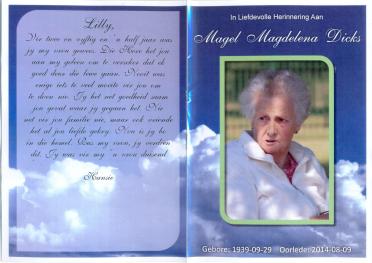 Lilly,
Vir twee en vyftig en 'n half jaar was
jy my vrou gewees. Die Here het jou
aan my gegee om te versorg dat ek
goed deur die lewe gaan. Nooit was
enige iets te veel moeite vir jou om
te doen nie. Jy het net goedheid saam
jou gevat waar jy gegaan het. Nie
net vir jou familie nie, maar ook vreemde
het al jou liefde gekry. Nou is jy bo
in die hemel. Rus my vrou, jy verdien
dit. Jy was vir my 'n vrou duisend
Hansie
In Liefdevolle Herinnering Aan
Magel Magdelena Dicks
Gebore: 1939-09-29 Oorlede: 2014-08-09